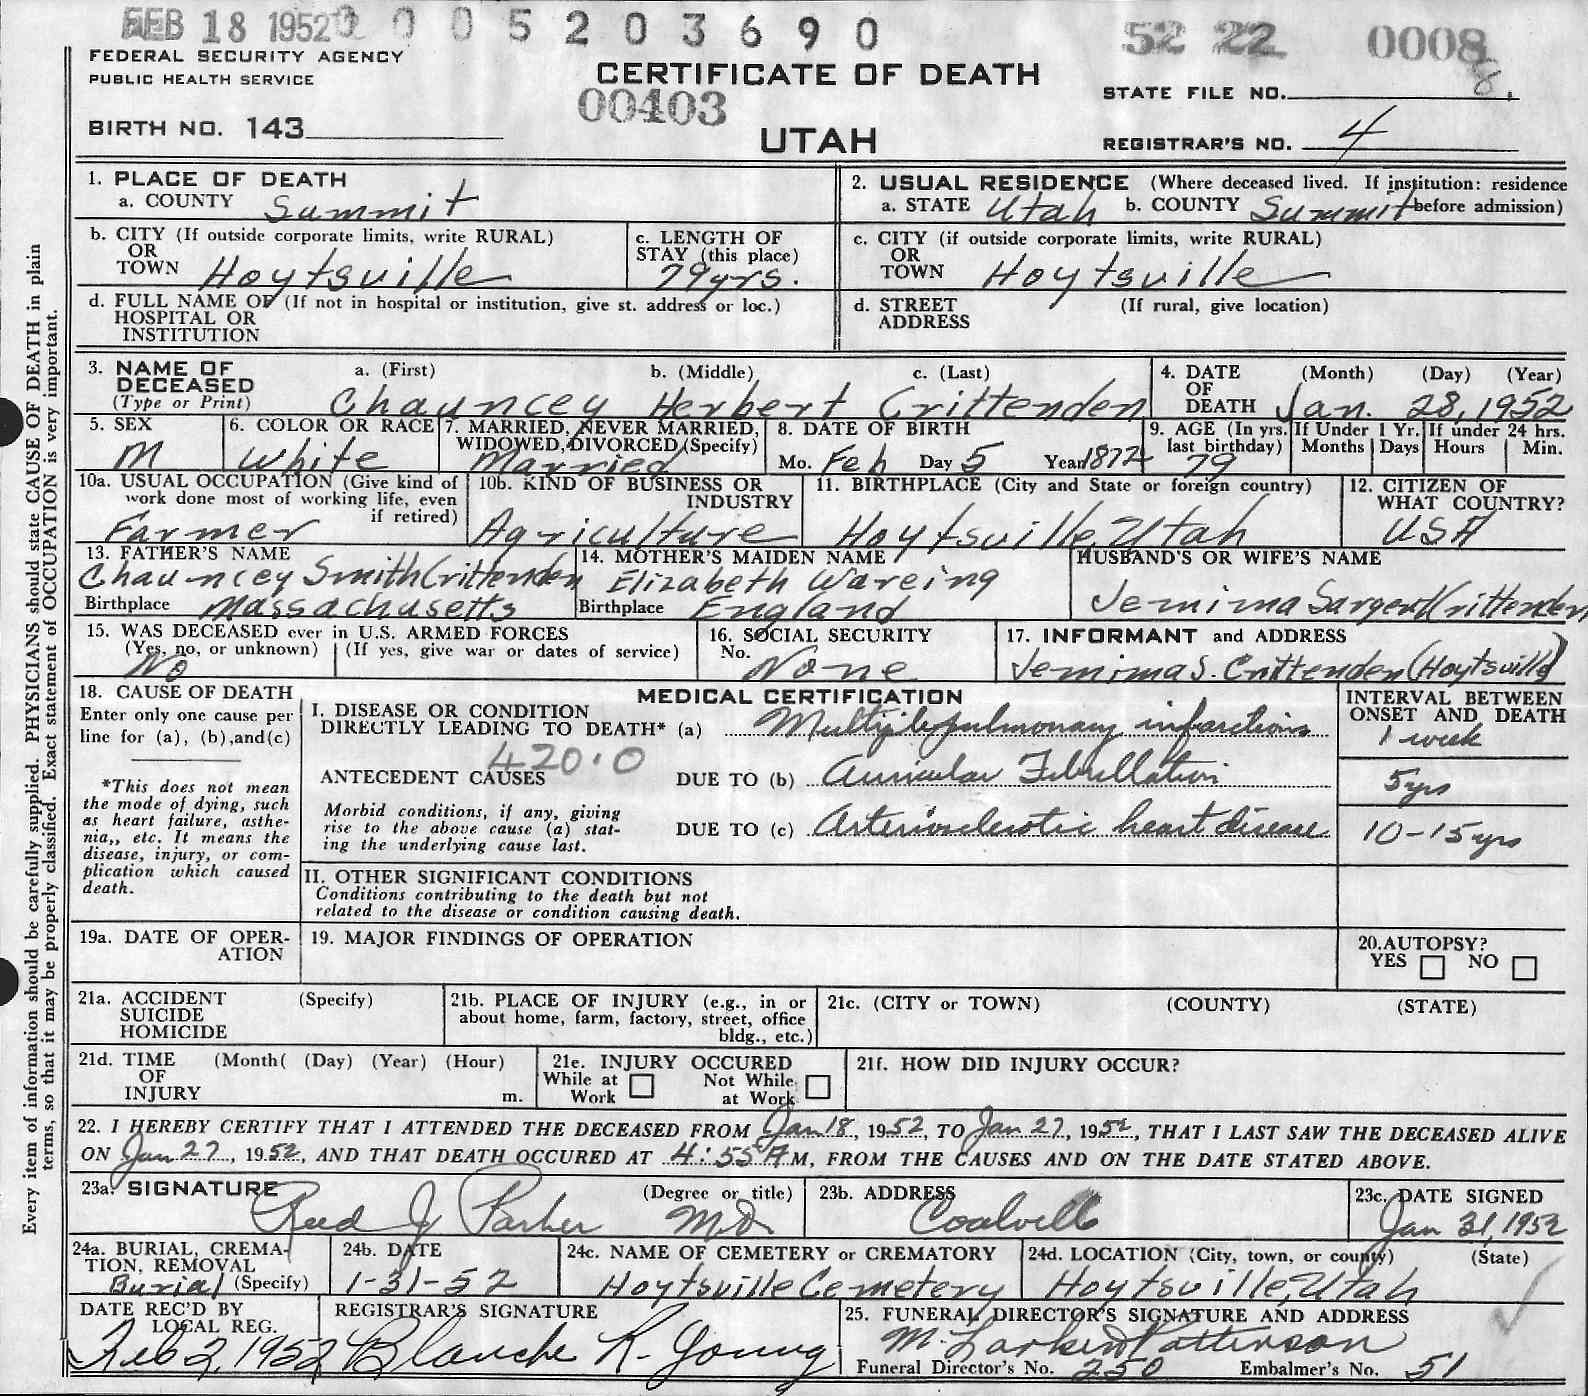 FEB 18 1952 0 0 0 5 2 0 3 6 9 0 52 22 0008
8.
FEDERAL SECURITY AGENCY
PUBLIC HEALTH SERVICE
CERTIFICATE OF DEATH
00403
UTAH
STATE FILE NO.
BIRTH NO. 143
REGISTRAR'S NO. 4
1. PLACE OF DEATH
a. COUNTY Summit
2. USUAL RESIDENCE (Where deceased lived. If institution: residence before admission)
a. STATE Utah b. COUNTY Summit
b. CITY (If outside corporate limits, write RURAL)
OR
TOWN Hoytsville
c. LENGTH OF
STAY (this place)
79yrs.
c. CITY (if outside corporate limits, write RURAL)
OR
TOWN Hoytsville
d. FULL NAME OF (If not in hospital or institution, give st. address or loc.)
HOSPITAL OR
INSTITUTION
d. STREET (If rural, give location)
ADDRESS
3. NAME OF
DECEASED
(Type or Print)
a. (First) b. (Middle) c. (Last)
Chauncey Herbert Crittenden
4. DATE (Month) (Day) (Year)
OF
DEATH Jan. 28, 1952
5. SEX
M
6. COLOR OR RACE
White
7. MARRIED, NEVER MARRIED,
WIDOWED, DIVORCED (Specify)
Married
8. DATE OF BIRTH
Mo. Feb Day 5 Year 1872
9. AGE (In yrs.
last birthday)
79
If Under 1 Yr.
Months Days
If under 24 hrs.
Hours Min.
10a. USUAL OCCUPATION (Give kind of
work done most of working life, even
if retired)
Farmer
10b. KIND OF BUSINESS OR
INDUSTRY
Agriculture
11. BIRTHPLACE (City and State or foreign country)
Hoytsville, Utah
12. CITIZEN OF
WHAT COUNTRY?
USA
13. FATHER'S NAME
Chauncey Smith Crittenden
Birthplace Massachusetts
14. MOTHER'S MAIDEN NAME
Elizabeth Wareing
Birthplace England
HUSBAND'S OR WIFE'S NAME
Jemima Sargent Crittenden
15. WAS DECEASED ever in U.S. ARMED FORCES
(Yes, no, or unknown) (If yes, give war or dates of service)
No
16. SOCIAL SECURITY
No. None
17. INFORMANT and ADDRESS
Jemima S. Crittenden (Hoytsville)
18. CAUSE OF DEATH
Enter only one cause per
line for (a), (b), and (c)
*This does not mean
the mode of dying, such
as heart failure, asthe-
nia,, etc. It means the
disease, injury, or com-
plication which caused
death.
MEDICAL CERTIFICATION
I. DISEASE OR CONDITION
DIRECTLY LEADING TO DEATH* (a) Multiple pulmonary infarctions
420.0
ANTECEDENT CAUSES DUE TO (b) Auricular Fibrillation
Morbid conditions, if any, giving
rise to the above cause (a) stat-
ing the underlying cause last.
DUE TO (c) Arteriosclerotic heart disease
INTERVAL BETWEEN
ONSET AND DEATH
1 week
5yrs
10-15yrs
II. OTHER SIGNIFICANT CONDITIONS
Conditions contributing to the death but not
related to the disease or condition causing death.
19a. DATE OF OPER-
ATION
19. MAJOR FINDINGS OF OPERATION
20. AUTOPSY?
YES NO
21a. ACCIDENT (Specify)
SUICIDE
HOMICIDE
21b. PLACE OF INJURY (e.g., in or
about home, farm, factory, street, office
bldg., etc.)
21c. (CITY or TOWN) (COUNTY) (STATE)
21d. TIME (Month( (Day) (Year) (Hour)
OF
INJURY m.
21e. INJURY OCCURED
While at Work Not While at Work
21f. HOW DID INJURY OCCUR?
22. I HEREBY CERTIFY THAT I ATTENDED THE DECEASED FROM Jan 18, 1952, TO Jan 27, 1952, THAT I LAST SAW THE DECEASED ALIVE
ON Jan 27, 1952, AND THAT DEATH OCCURED AT 4:55 AM, FROM THE CAUSES AND ON THE DATE STATED ABOVE.
23a. SIGNATURE (Degree or title)
Reed J Parker M.D.
23b. ADDRESS
Coalville
23c. DATE SIGNED
Jan 31, 1952
24a. BURIAL, CREMA-
TION, REMOVAL
Burial (Specify)
24b. DATE
1-31-52
24c. NAME OF CEMETERY or CREMATORY
Hoytsville Cemetery
24d. LOCATION (City, town, or county) (State)
Hoytsville, Utah
DATE REC'D BY
LOCAL REG.
Feb 2, 1952
REGISTRAR'S SIGNATURE
Blanche R. Young
25. FUNERAL DIRECTOR'S SIGNATURE AND ADDRESS
M. Larkin Patterson
Funeral Director's No. 250 Embalmer's No. 51
Every item of information should be carefully supplied. PHYSICIANS should state CAUSE OF DEATH in plain
terms, so that it may be properly classified. Exact statement of OCCUPATION is very important.